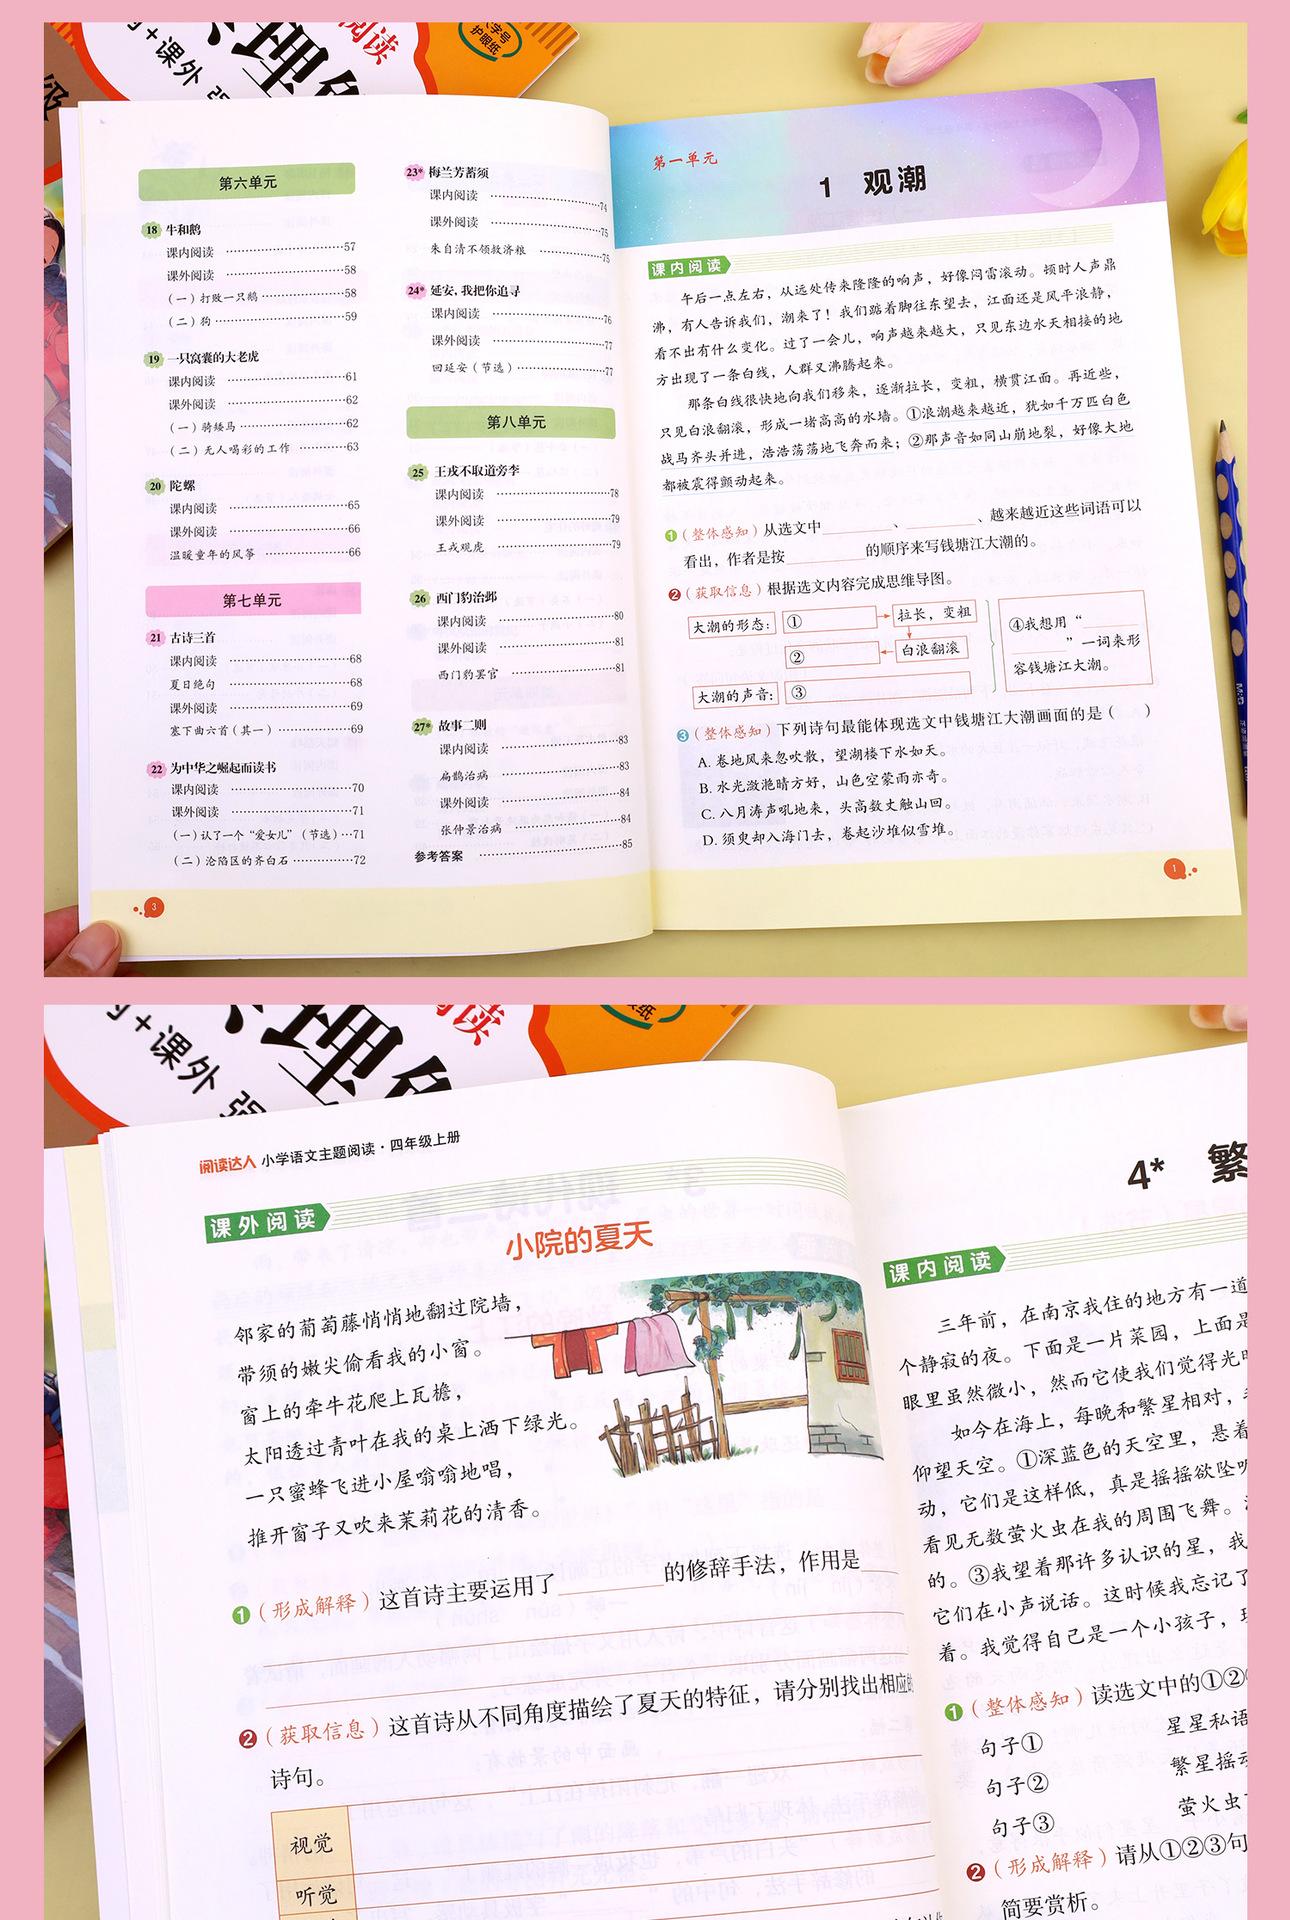 阅读
字号
护眼纸
+课外
理解
第六单元
18 牛和鹅
课内阅读 57
课外阅读 58
（一）打败一只鹅 58
（二）狗 59
19 一只窝囊的大老虎
课内阅读 61
课外阅读 62
（一）骑矮马 62
（二）无人喝彩的工作 63
20 陀螺
课内阅读 65
课外阅读 66
温暖童年的风筝 66
第七单元
21 古诗三首
课内阅读 68
夏日绝句 68
课外阅读 69
塞下曲六首（其一） 69
22 为中华之崛起而读书
课内阅读 70
课外阅读 71
（一）认了一个“爱女儿”（节选） 71
（二）沦陷区的齐白石 72
3
23* 梅兰芳蓄须
课内阅读 74
课外阅读 75
朱自清不领救济粮 75
24* 延安，我把你追寻
课内阅读 76
课外阅读 77
回延安（节选） 77
第八单元
25 王戎不取道旁李
课内阅读 78
课外阅读 79
王戎观虎 79
26 西门豹治邺
课内阅读 80
课外阅读 81
西门豹罢官 81
27* 故事二则
课内阅读 83
扁鹊治病 83
课外阅读 84
张仲景治病 84
参考答案 85
第一单元
1 观潮
课内阅读
午后一点左右，从远处传来隆隆的响声，好像闷雷滚动。顿时人声鼎
沸，有人告诉我们，潮来了！我们踮着脚往东望去，江面还是风平浪静，
看不出有什么变化。过了一会儿，响声越来越大，只见东边水天相接的地
方出现了一条白线，人群又沸腾起来。
那条白线很快地向我们移来，逐渐拉长，变粗，横贯江面。再近些，
只见白浪翻滚，形成一堵高高的水墙。①浪潮越来越近，犹如千万匹白色
战马齐头并进，浩浩荡荡地飞奔而来；②那声音如同山崩地裂，好像大地
都被震得颤动起来。
1（整体感知）从选文中________、________、越来越近这些词语可以
看出，作者是按________的顺序来写钱塘江大潮的。
2（获取信息）根据选文内容完成思维导图。
大潮的形态：
①
拉长，变粗
②
白浪翻滚
大潮的声音：
③
④我想用“________
________”一词来形
容钱塘江大潮。
3（整体感知）下列诗句最能体现选文中钱塘江大潮画面的是（ ）
A. 卷地风来忽吹散，望湖楼下水如天。
B. 水光潋滟晴方好，山色空蒙雨亦奇。
C. 八月涛声吼地来，头高数丈触山回。
D. 须臾却入海门去，卷起沙堆似雪堆。
1
+课外
理解
阅读达人 小学语文主题阅读·四年级上册
课外阅读
小院的夏天
邻家的葡萄藤悄悄地翻过院墙，
带须的嫩尖偷看我的小窗。
窗上的牵牛花爬上瓦檐，
太阳透过青叶在我的桌上洒下绿光。
一只蜜蜂飞进小屋嗡嗡地唱，
推开窗子又吹来茉莉花的清香。
1（形成解释）这首诗主要运用了________的修辞手法，作用是
2（获取信息）这首诗从不同角度描绘了夏天的特征，请分别找出相应的
诗句。
视觉
听觉
4* 繁
课内阅读
三年前，在南京我住的地方有一道
个静寂的夜。下面是一片菜园，上面是
眼里虽然微小，然而它使我们觉得光明
如今在海上，每晚和繁星相对，
仰望天空。①深蓝色的天空里，悬着
动，它们是这样低，真是摇摇欲坠呢
看见无数萤火虫在我的周围飞舞。
的。③我望着那许多认识的星，我
它们在小声说话。这时候我忘记了
着。我觉得自己是一个小孩子，
1（整体感知）读选文中的①②
句子① 星星私语
句子② 繁星摇动
句子③ 萤火虫
2（形成解释）请从①②③句
简要赏析。